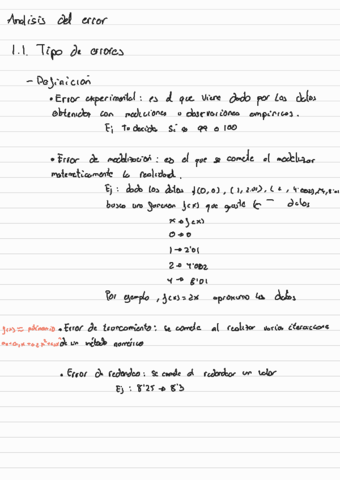 Analisis del error
1.1. Tipo de errores
- Definición
• Error experimental: es el que viene dado por los datos
obtenidos con mediciones o observaciones empíricas.
Ej To decides si 99 o 100
• Error de modelización: es el que se comete al modelizar
matemáticamente la realidad.
Ej: dado los datos (0,0), (1, 2.01), (2, 4'002),
busco una funcion f(x) que ajuste datos
x → f(x)
0 → 0
1 → 2'01
2 → 4'002
4 → 8'01
Por ejemplo, f(x) = 2x aproxima los datos
f(x) = polinomio • Error de truncamiento: se comete al realizar varias iteraciones
de un método numérico
• Error de redondeo: se comete al redondear un valor
Ej: 8'25 → 8'3